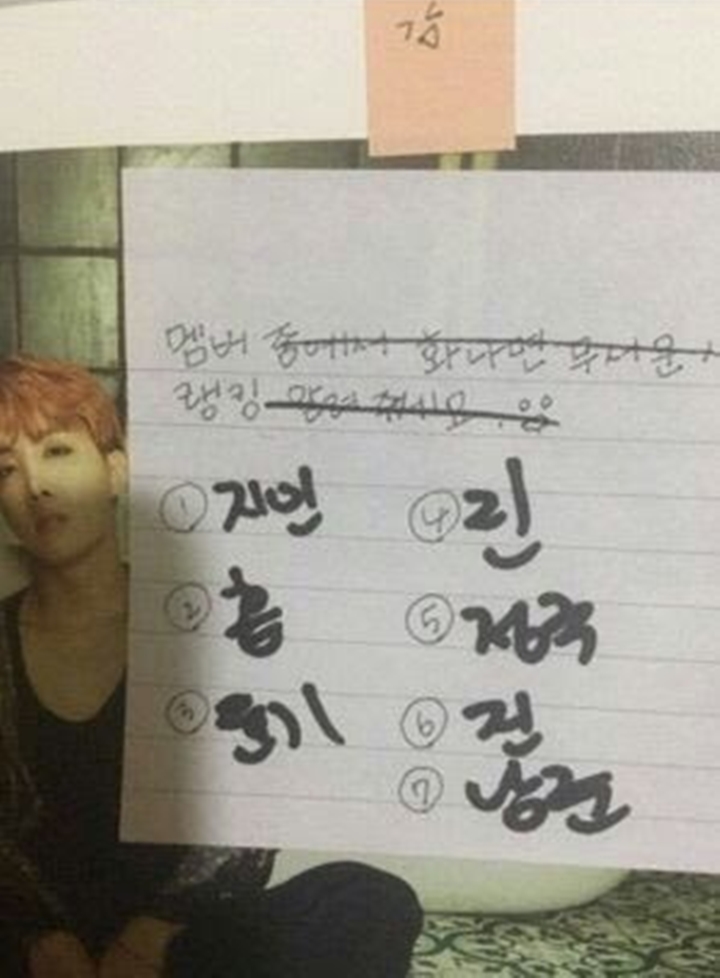 멤버 중에서 화나면 무서운
랭킹 알려 줘시요.
① 지민
② 홉
③ 윤기
④ 린
⑤ 정국
⑥ 진
⑦ 남준